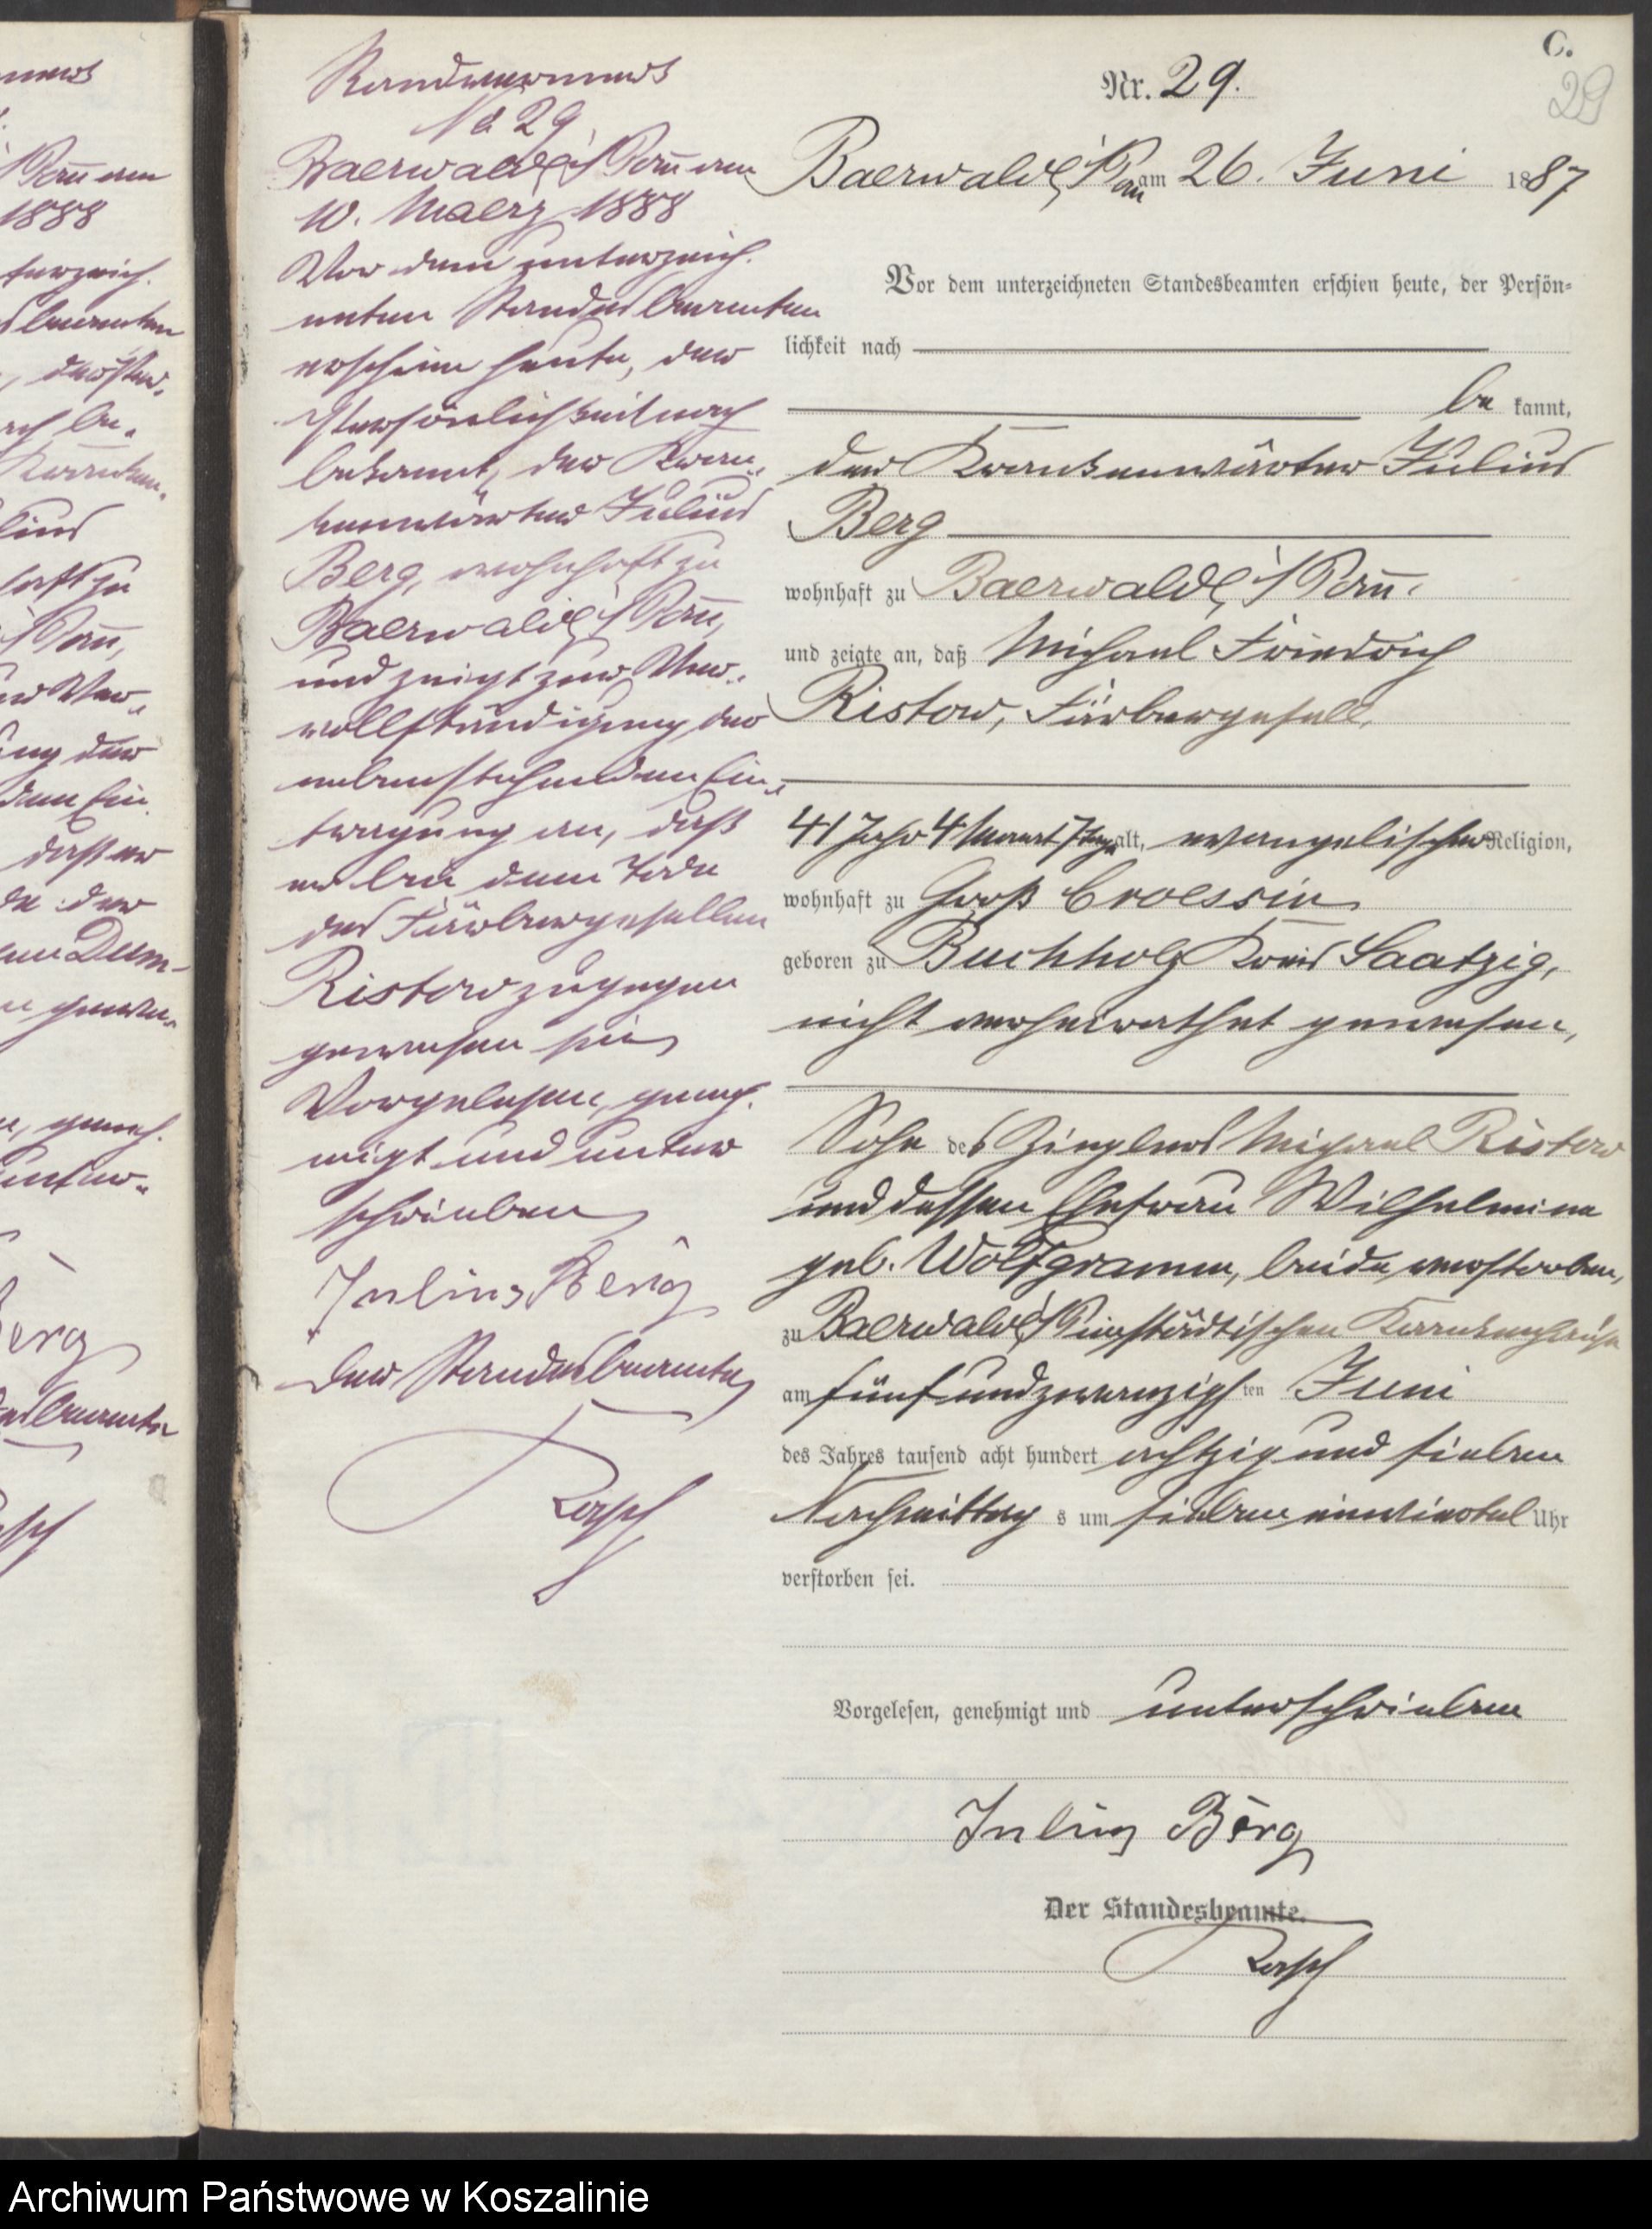 C.
29
Nr. 29.
Baerwalde i/Pom am 26. Juni 1887
Vor dem unterzeichneten Standesbeamten erschien heute, der Persön-
lichkeit nach
be kannt,
der Krankenwärter Julius
Berg
wohnhaft zu Baerwalde i/Pom.
und zeigte an, daß Michael Friedrich
Ristow, Färbergesell,
41 Jahr 4 Monat 7 Tage alt, evangelischer Religion,
wohnhaft zu Groß Croessin
geboren zu Buchholz Kreis Saatzig,
nicht verheirathet gewesen,
Sohn des Zieglers Michael Ristow
und dessen Ehefrau Wilhelmine
geb. Wolfgramm, beide verstorben,
zu Baerwalde i/P im städtischen Krankenhause
am fünfundzwanzigsten Juni
des Jahres tausend acht hundert achtzig und sieben
Nachmittags um sieben einviertel Uhr
verstorben sei.
Vorgelesen, genehmigt und unterschrieben
Julius Berg
Der Standesbeamte.
Rasch
Randvermerk
No 29
Baerwalde i/Pom am
10. Maerz 1888
Vor dem unterzeich-
neten Standesbeamten
erschien heute, der
Persönlichkeit nach
bekannt, der Kran-
kenwärter Julius
Berg, wohnhaft zu
Baerwalde i/Pom,
und zeigt zur Ver-
vollständigung der
nebenstehenden Ein-
tragung an, daß
er bei dem Tode
des Färbergesellen
Ristow zugegen
gewesen sei
Vorgelesen, geneh-
migt und unter
schrieben
Julius Berg
Der Standesbeamte
Rasch
Archiwum Państwowe w Koszalinie